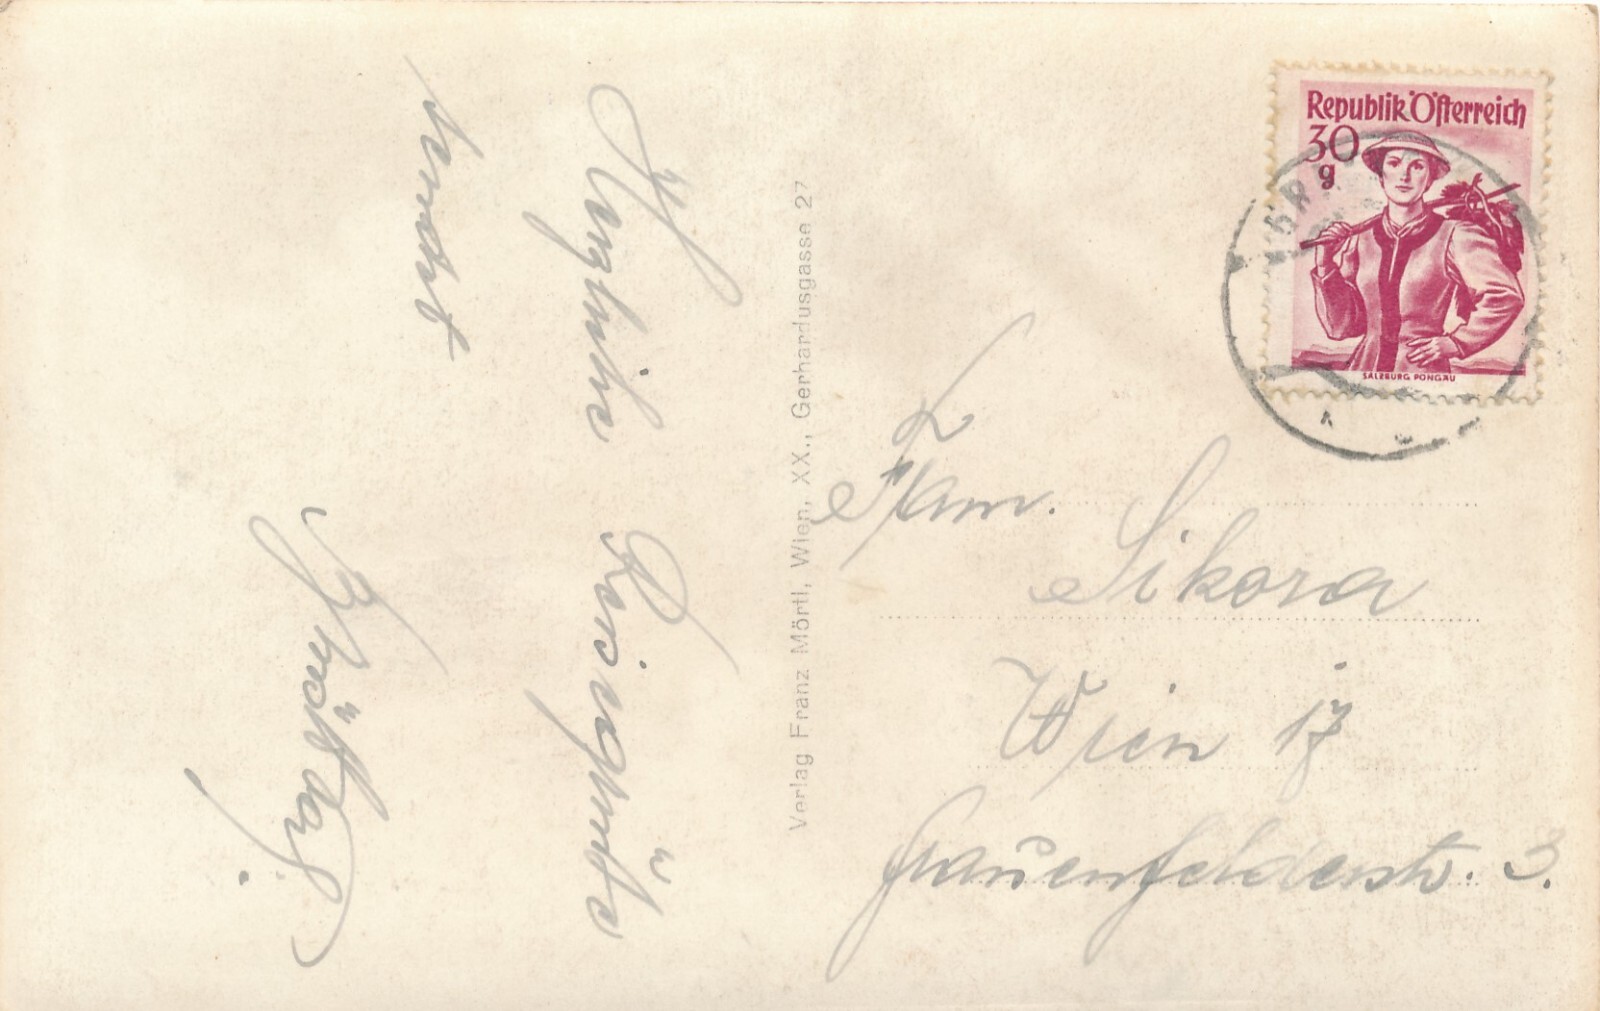 Herzliche Feriengrüße
sendet
Republik Österreich
30
g
SALZBURG PONGAU
Verlag Franz Mörtl, Wien, XX., Gerhardusgasse 27
Fam.
Sikora
Wien 17
Frauenfelderstr. 3.